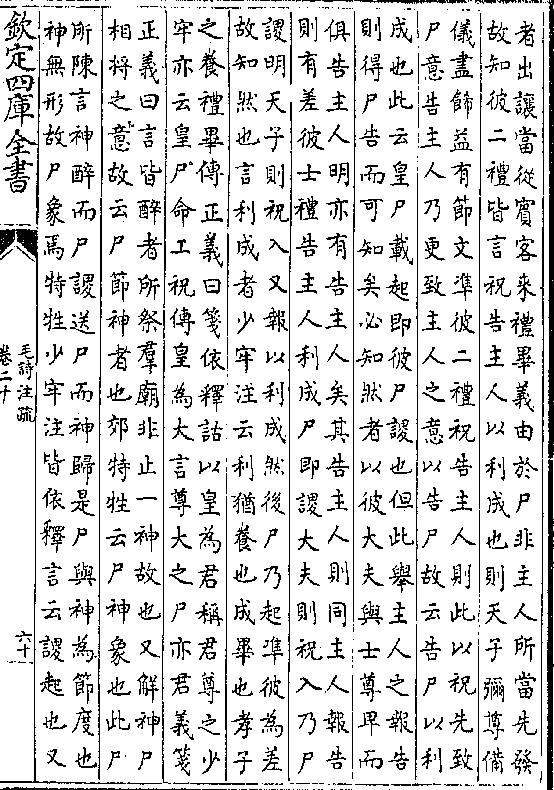 者出讓當從賓客來禮畢義由於尸非主人所當先發
故知彼二禮皆言祝告主人以利成也則天子彌尊備
儀盡飾益有節文準彼二禮祝告主人則此以祝先致
尸意告主人乃更致主人之意以告尸故云告尸以利
成也此云皇尸載起即彼尸謖也但此舉主人之報告
則得尸告而可知矣必知然者以彼大夫與士尊卑而
俱告主人明亦有告主人矣其告主人則同主人報告
則有差彼士禮告主人利成尸即謖大夫則祝入乃尸
謖明天子則祝入又報以利成然後尸乃起準彼為差
故知然也言利成者少牢注云利猶養也成畢也孝子
之養禮畢傳正義曰箋依釋詁以皇為君稱君尊之少
牢亦云皇尸命工祝傳皇為大言尊大之尸亦君義箋
正義曰言皆醉者所祭羣廟非止一神故也又解神尸
相將之意故云尸節神者也郊特牲云尸神象也此尸
所陳言神醉而尸謖送尸而神歸是尸與神為節度也
神無形故尸象焉特牲少牢注皆依釋言云謖起也又
欽定四庫全書
毛詩注疏
卷二十
六十一